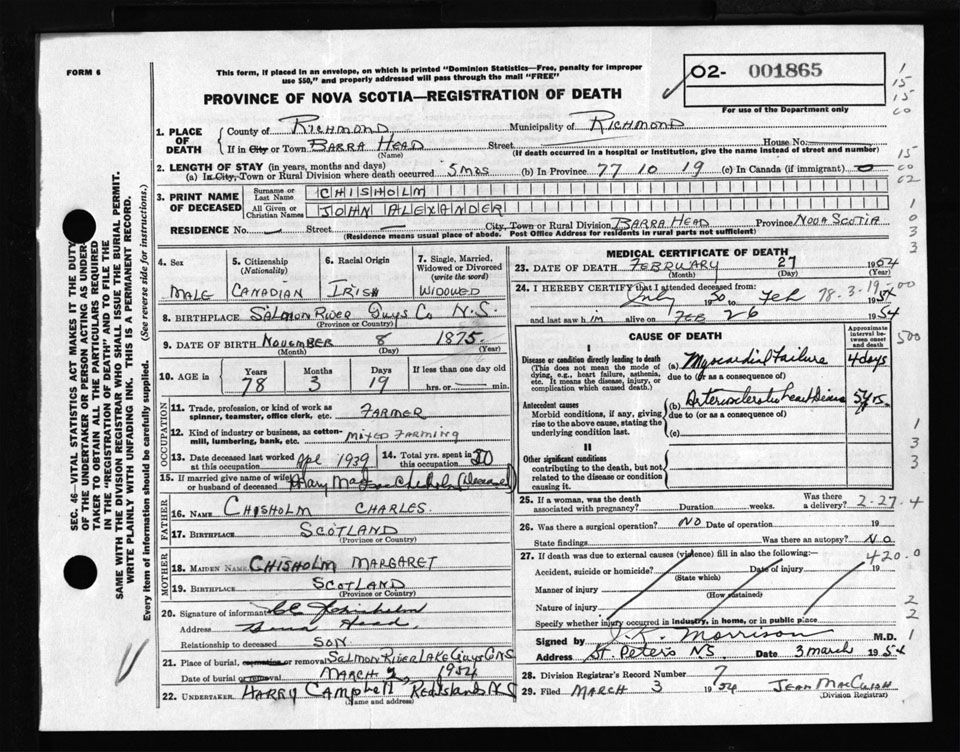 FORM 6
This form, if placed in an envelope, on which is printed "Dominion Statistics—Free, penalty for improper
use $50," and properly addressed will pass through the mail "FREE"
02- 001865
For use of the Department only
PROVINCE OF NOVA SCOTIA—REGISTRATION OF DEATH
1. PLACE OF DEATH { County of RICHMOND Municipality of RICHMOND
If in City or Town BARRA HEAD Street House No.
(Name) (If death occurred in a hospital or institution, give the name instead of street and number)
2. LENGTH OF STAY (in years, months and days)
(a) In City, Town or Rural Division where death occurred 5 mos (b) In Province 77 10 19 (c) In Canada (if immigrant) 0
3. PRINT NAME OF DECEASED { Surname or Last Name CHISHOLM
All Given or Christian Names JOHN ALEXANDER
RESIDENCE No. — Street — City, Town or Rural Division BARRA HEAD Province NOVA SCOTIA
(Residence means usual place of abode. Post Office Address for residents in rural parts not sufficient)
SEC. 46—VITAL STATISTICS ACT MAKES IT THE DUTY
OF THE UNDERTAKER OR PERSON ACTING AS UNDER-
TAKER TO OBTAIN ALL THE PARTICULARS REQUIRED
IN THE "REGISTRATION OF DEATH" AND TO FILE THE
SAME WITH THE DIVISION REGISTRAR WHO SHALL ISSUE THE BURIAL PERMIT.
WRITE PLAINLY WITH UNFADING INK. THIS IS A PERMANENT RECORD.
Every item of information should be carefully supplied. (See reverse side for instructions.)
4. Sex MALE
5. Citizenship (Nationality) CANADIAN
6. Racial Origin IRISH
7. Single, Married, Widowed or Divorced (write the word) WIDOWED
8. BIRTHPLACE SALMON RIVER Guys Co N.S.
(Province or Country)
9. DATE OF BIRTH NOVEMBER 8 1875
(Month) (Day) (Year)
10. AGE in { Years 78 Months 3 Days 19 If less than one day old
hrs. or min.
OCCUPATION
11. Trade, profession, or kind of work as spinner, teamster, office clerk, etc. FARMER
12. Kind of industry or business, as cotton-mill, lumbering, bank, etc. MIXED FARMING
13. Date deceased last worked at this occupation Apl 1939
14. Total yrs. spent in this occupation 50
15. If married give name of wife or husband of deceased Mary Mae Chisholm (deceased)
FATHER
16. NAME CHISHOLM CHARLES
17. BIRTHPLACE SCOTLAND
(Province or Country)
MOTHER
18. MAIDEN NAME CHISHOLM MARGARET
19. BIRTHPLACE SCOTLAND
(Province or Country)
20. Signature of informant Chisholm
Address Barra Head
Relationship to deceased SON
21. Place of burial, cremation or removal SALMON RIVER LAKE Guys Co NS
Date of burial or removal MARCH 2, 1954
22. UNDERTAKER HARRY CAMPBELL Red Islands N S
(Name and address)
MEDICAL CERTIFICATE OF DEATH
23. DATE OF DEATH FEBRUARY 27 1954
(Month) (Day) (Year)
24. I HEREBY CERTIFY that I attended deceased from:
July 1950 to Feb 1954
78.3.19.00
and last saw him alive on FEB 26 1954
CAUSE OF DEATH
Approximate interval between onset and death
I
Disease or condition directly leading to death (a) Myocardial Failure 4 days
(This does not mean the mode of dying, e.g., heart failure, asthenia, etc. It means the disease, injury, or complication which caused death.)
due to (or as a consequence of)
Antecedent causes (b) Arteriosclerotic heart disease 5 yrs.
Morbid conditions, if any, giving rise to the above cause, stating the underlying condition last.
due to (or as a consequence of)
(c)
II
Other significant conditions
contributing to the death, but not related to the disease or condition causing it.
25. If a woman, was the death associated with pregnancy? Duration weeks. Was there a delivery? 2-27-4
26. Was there a surgical operation? NO Date of operation 19
State findings Was there an autopsy? NO
27. If death was due to external causes (violence) fill in also the following: 420.0
Accident, suicide or homicide? Date of injury 19
(State which)
Manner of injury
(How sustained)
Nature of injury
Specify whether injury occurred in industry, in home, or in public place
Signed by J.K. Morrison M.D.
Address St. Peters NS Date 3 march 1954
28. Division Registrar's Record Number 7
29. Filed MARCH 3 1954 JEAN MacCuish
(Division Registrar)
1
15
15
00
15
00
02
1
0
3
3
500
1
3
3
0
2
2
1